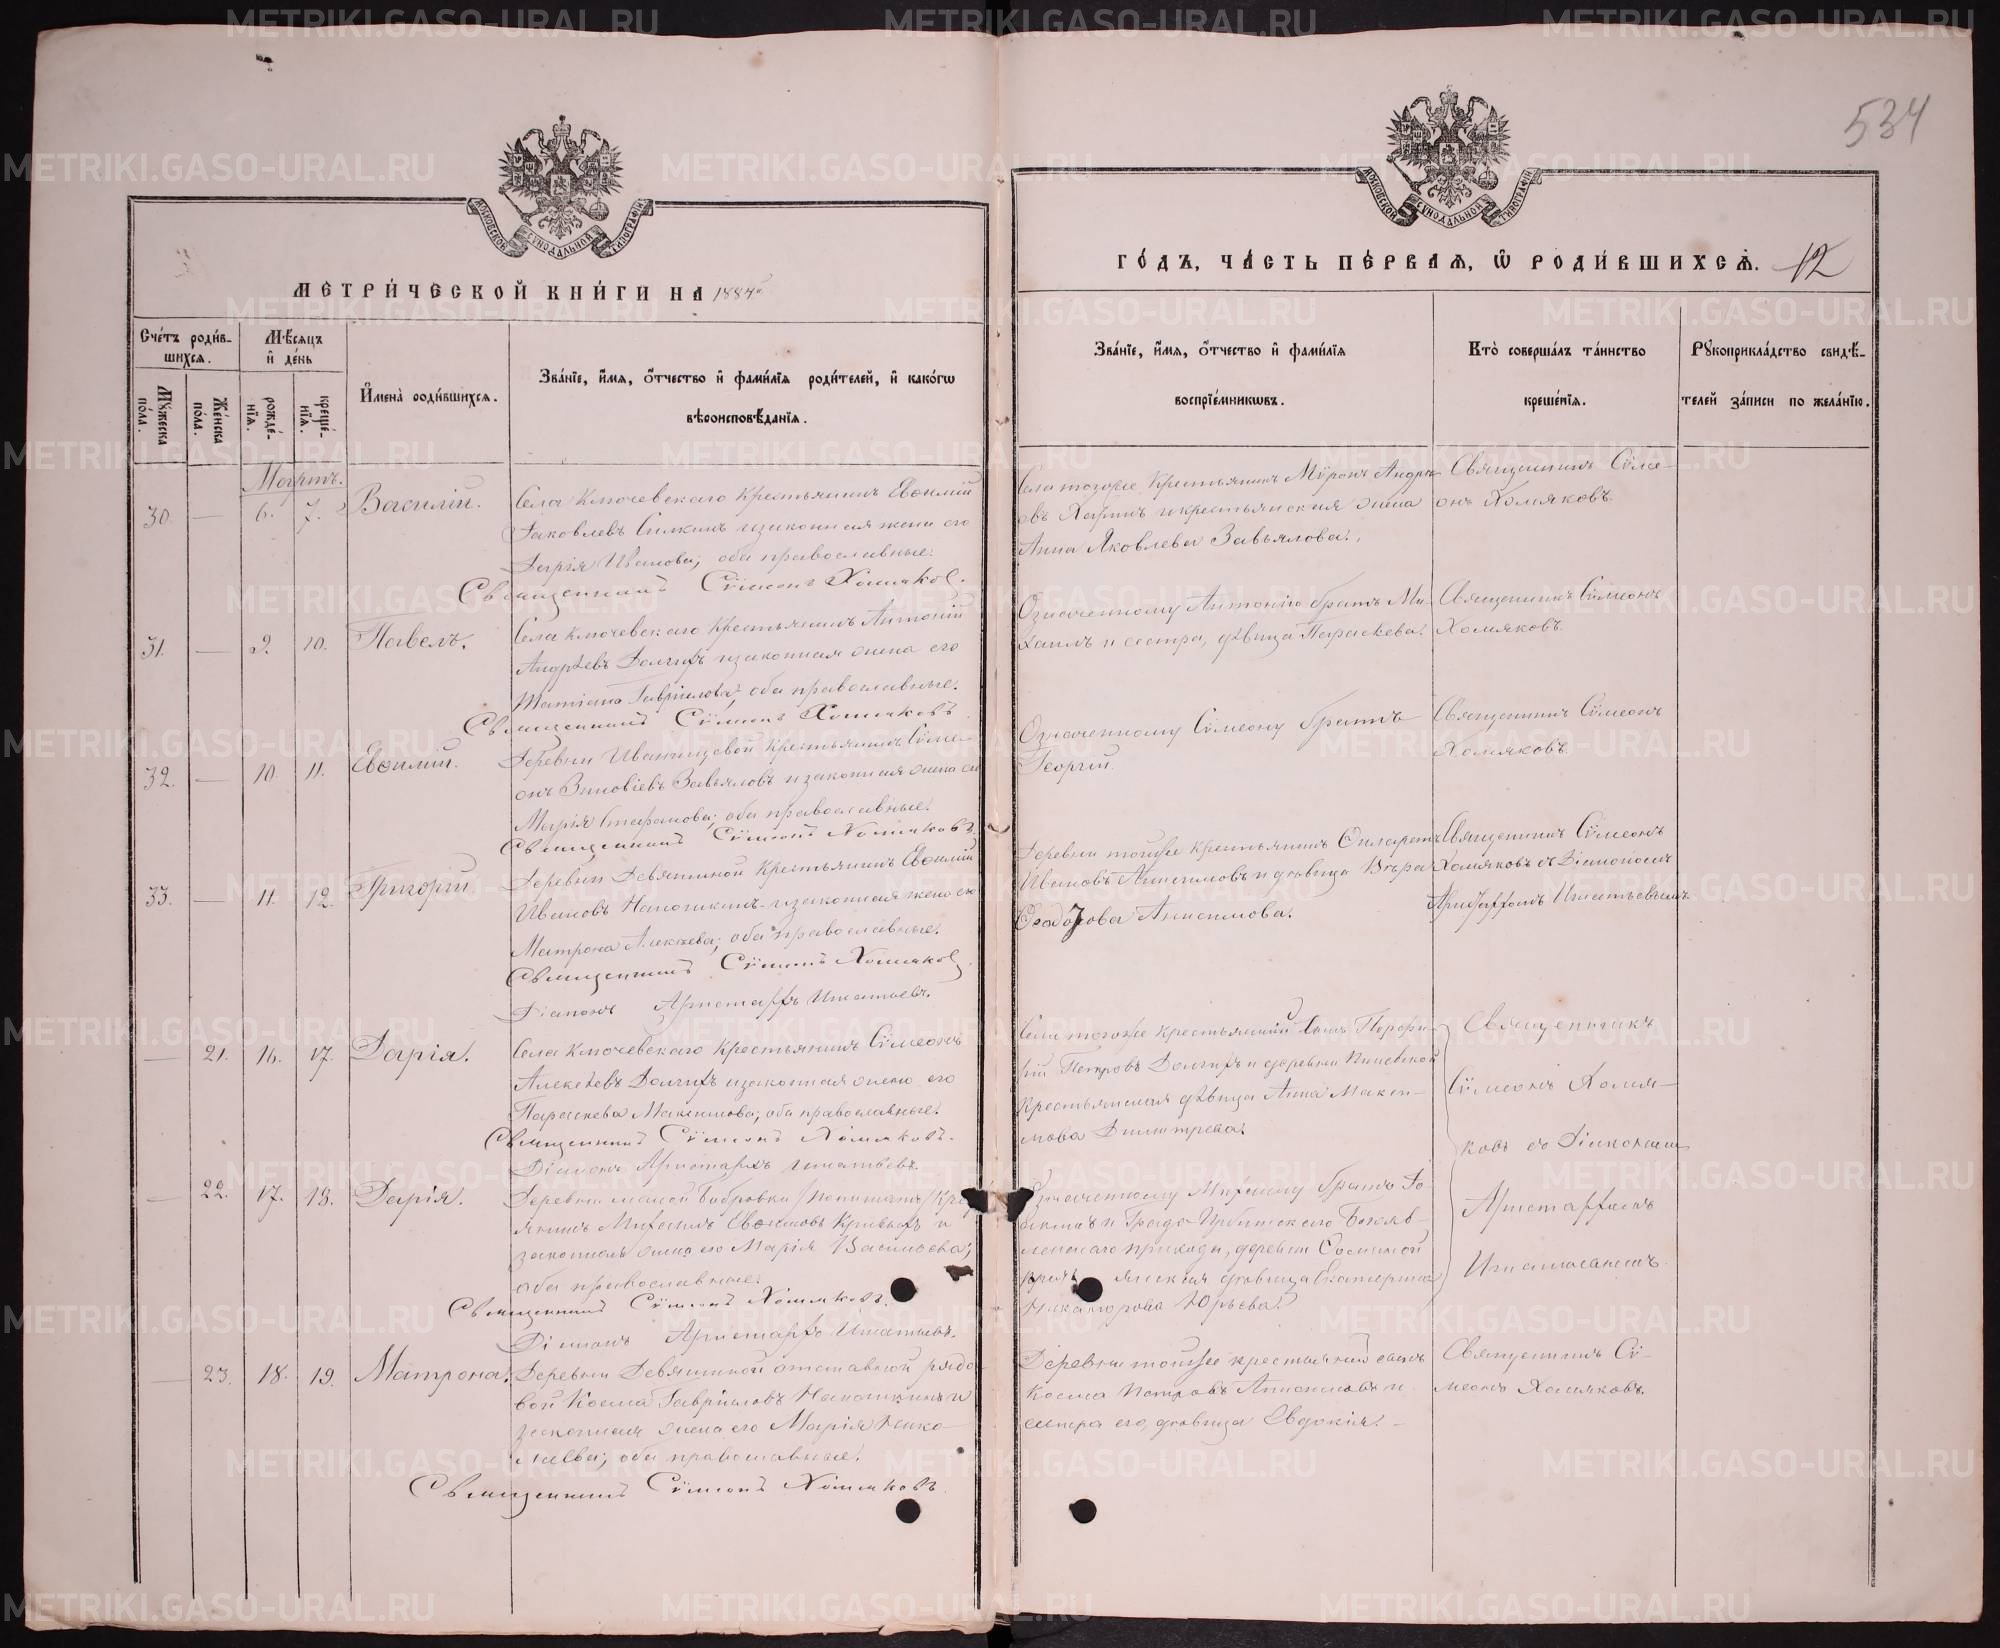 534
МОСКОВСКОЙ СѴНОДАЛЬНОЙ ТИПОГРАФІИ
МОСКОВСКОЙ СѴНОДАЛЬНОЙ ТИПОГРАФІИ
МЕТРИ́ЧЕСКОЙ КНИ́ГИ НА 1884й
ГО́ДЪ, ЧА́СТЬ ПЕ́РВАЯ, Ѡ РОДИ́ВШИХСѦ. 12
Сче́тъ роди́в-
шихсѧ.
Мꙋ́жеска по́ла.
Же́нска по́ла.
Мѣ́сѧцъ и҆ де́нь
рожде́-
нїѧ.
креще́-
нїѧ.
И҆мена̀ роди́вшихсѧ.
Зва́нїе, и҆́мѧ, ѻ҆́тчество и҆ фами́лїѧ роди́телей, и҆ како́гѡ
вѣроисповѣ́данїѧ.
Зва́нїе, и҆́мѧ, ѻ҆́тчество и҆ фами́лїѧ
воспрїе́мникѡвъ.
Кто̀ соверша́лъ та́инство
креще́нїѧ.
Рꙋкоприкла́дство свидѣ́-
телей за́писи по жела́нїю.
Мартъ.
30. — 6. 7. Василій.
Села Ключевскаго Крестьянинъ Евѳимій
Іаковлевъ Силкинъ и законная жена его
Дарія Иванова; оба православные.
Священникъ Сѷмеонъ Хомяковъ.
Села тогоже Крестьянинъ Мѵронъ Андре-
евъ и крестьянская жена
Анна Яковлева Завьялова.
Священникъ Сѵме-
онъ Хомяковъ.
31. — 9. 10. Павелъ.
Села Ключевскаго Крестьянинъ Антоній
Андреевъ Долгихъ и законная жена его
Татіана Гавріилова, оба православные.
Священникъ Сѷмеонъ Хомяковъ
Означенному Антонію братъ Ми-
хаилъ и сестра, дѣвица Параскева.
Священникъ Сѵмеонъ
Хомяковъ.
32. — 10. 11. Евѳимій.
Деревни Иванищевой крестьянинъ Сѵме-
онъ Зиновіевъ Завьяловъ и законная жена его
Марія Стефанова; оба православные.
Священникъ Сѷмеонъ Хомяковъ
Означенному Сѵмеону братъ
Георгій.
Священникъ Сѵмеонъ
Хомяковъ.
33. — 11. 12. Григорій.
Деревни Девяшиной Крестьянинъ Евѳимій
Ивановъ и законная жена его
Матрона Алексеева; оба православные.
Священникъ Сѷмеонъ Хомяковъ
Діаконъ Аристархъ Игнатьевъ.
Деревни тойже крестьянинъ Филаретъ
Ивановъ Анисимовъ и дѣвица Вѣра
Ѳеодорова Анисимова.
Священникъ Сѵмеонъ
Хомяковъ съ Діакономъ
Аристархомъ Игнатьевымъ.
— 21. 16. 17. Дарія.
Села Ключевскаго Крестьянинъ Сѵмеонъ
Алексѣевъ Долгихъ и законная жена его
Параскева Максимова; оба православные.
Священникъ Сѷмеонъ Хомяковъ.
Діаконъ Аристархъ Игнатьевъ.
Села тогоже крестьянскій сынъ Порфи-
рій Петровъ Долгихъ и деревни
Крестьянская дѣвица Анна Макси-
мова Димитрева.
Священникъ
Сѵмеонъ Хомя-
ковъ съ Діакономъ
Аристархомъ
Игнатьевымъ.
— 22. 17. 18. Дарія.
Деревни малой Бобровки
янинъ Михаилъ Евѳимовъ Кривыхъ и
законная жена его Марія Васильева;
оба православные.
Священникъ Сѷмеонъ Хомяковъ.
Діаконъ Аристархъ Игнатьевъ.
Означенному Михаилу братъ
и Града Ирбитскаго Богояв-
ленскаго прихода, деревни
дѣвица Екатерина
Никанорова Юрьева.
— 23. 18. 19. Матрона.
Деревни Девяшиной отставной рядо-
вой Косма Гавріиловъ и
законная жена его Марія Нико-
лаева; оба православные.
Священникъ Сѷмеонъ Хомяковъ
Деревни тойже крестьянскій сынъ
Косма Петровъ Анисимовъ и
сестра его, дѣвица Евдокія.
Священникъ Сѵ-
меонъ Хомяковъ.
METRIKI.GASO-URAL.RU